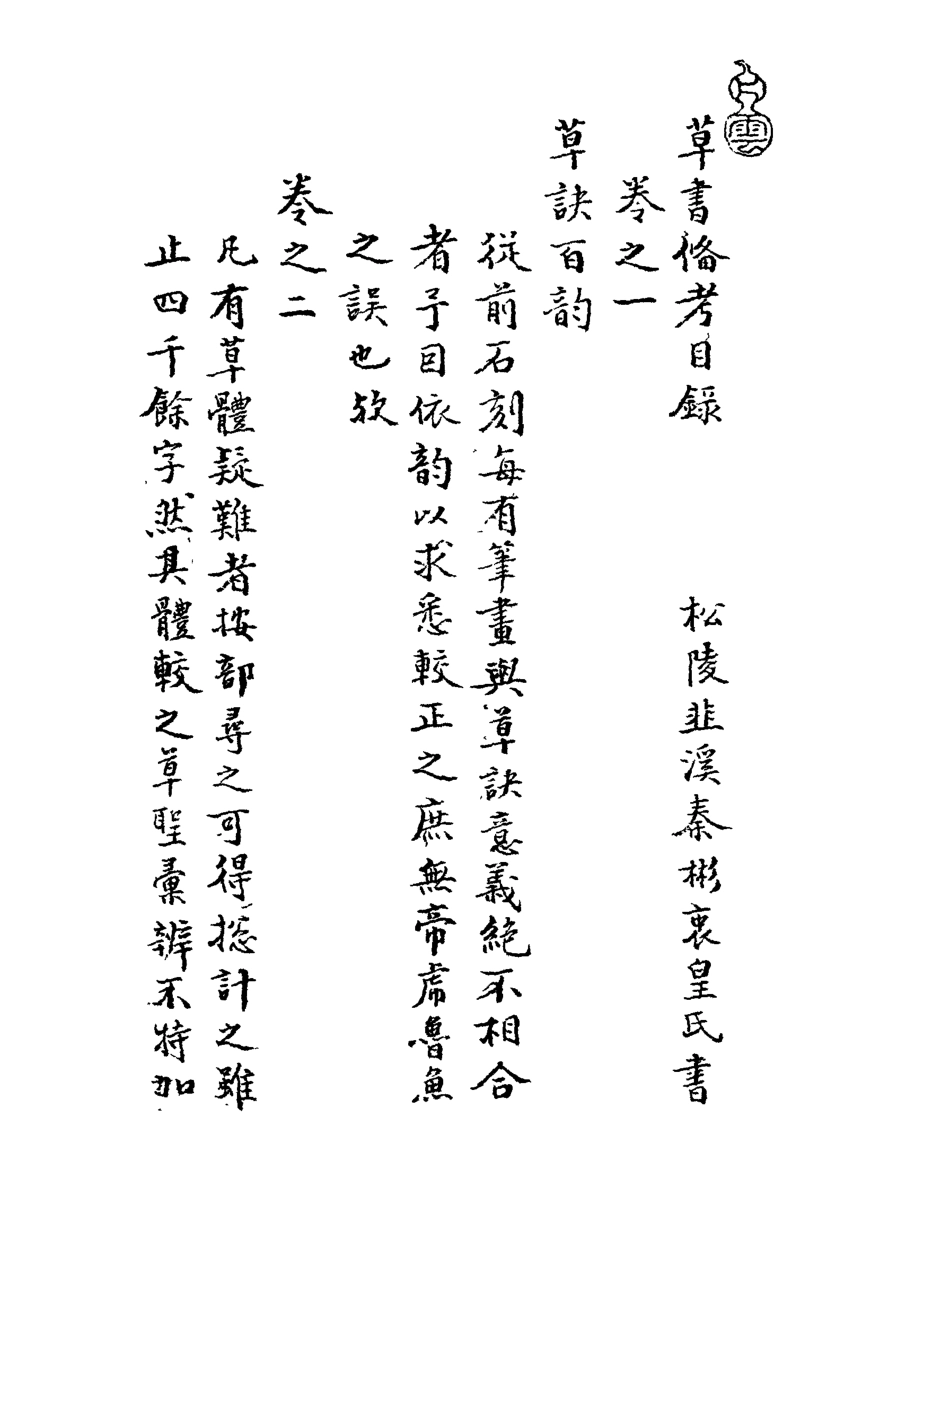 白雲
草書偹考目錄 松陵韭溪秦彬衷皇氏書
卷之一
草訣百韵
從前石刻每有筆畫與草訣意義絶不相合
者予因依韵以求悉較正之庶無帝虎魯魚
之誤也欤
卷之二
凡有草體疑難者按部尋之可得揔計之雖
止四千餘字然其體較之草聖彙辨不特加